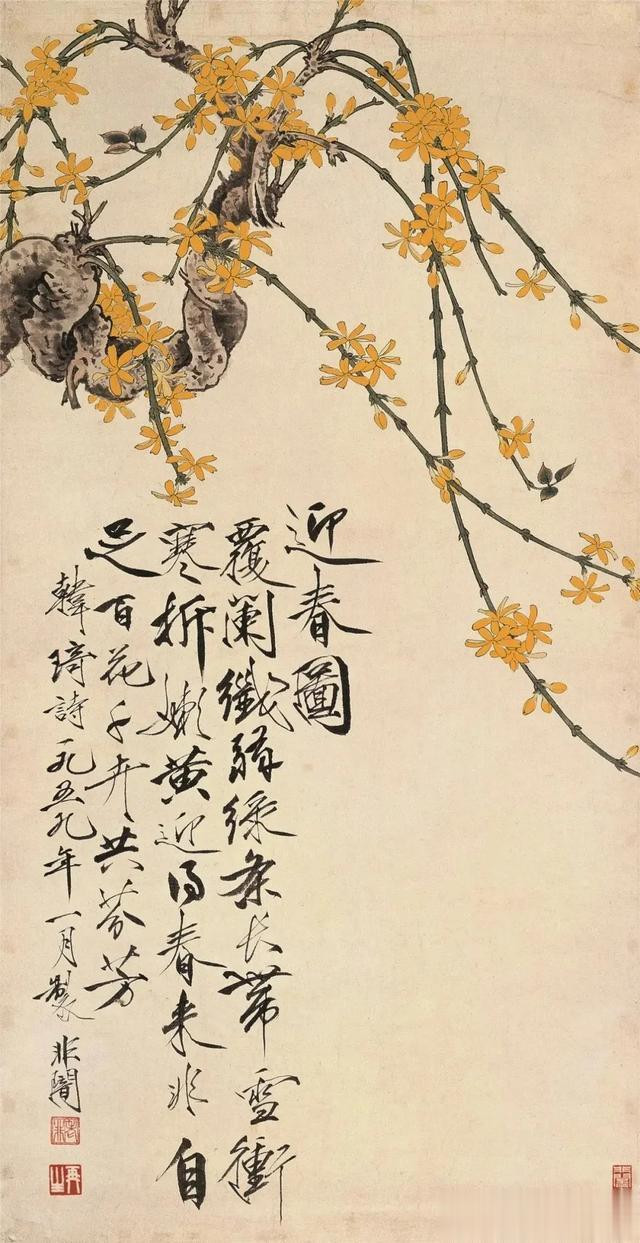 迎春圖
覆闌纖弱綠条长帶雪衝
寒拆嫩黄迎得春来非自
足百花千卉共芬芳
韓琦詩一九五九年一月製 非闇